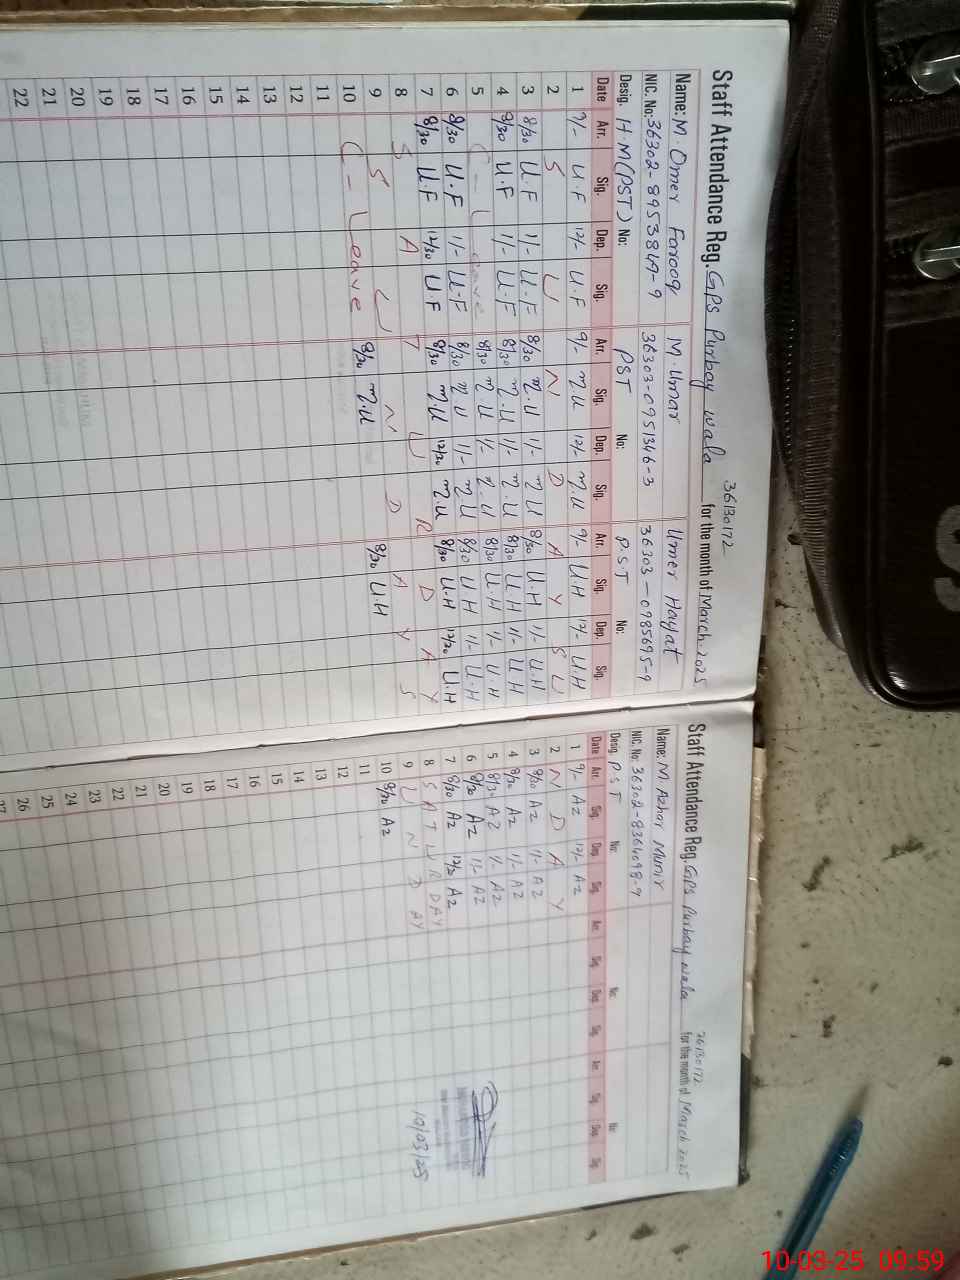 36130172
Staff Attendance Reg. GPS Purbay wala for the month of March. 2025
Name: M. Omer Farooq M. Umar Umer Hayat
NIC. No: 36302-8953849-9 36303-0951346-3 36303-0985695-9
Desig. H.M(PST) No: PST No: P.S.T No:
Date Arr. Sig. Dep. Sig. Arr. Sig. Dep. Sig. Arr. Sig. Dep. Sig.
1 9/- U.F 12/- U.F 9/- M.U 12/- M.U 9/- U.H 12/- U.H
2 S U N D A Y S U
3 8/30 U.F 1/- U.F 8/30 M.U 1/- M.U 8/30 U.H 1/- U.H
4 8/30 U.F 1/- U.F 8/30 M.U 1/- M.U 8/30 U.H 1/- U.H
5 C - Leave 8/30 M.U 1/- M.U 8/30 U.H 1/- U.H
6 8/30 U.F 1/- U.F 8/30 M.U 1/- M.U 8/30 U.H 1/- U.H
7 8/30 U.F 12/30 U.F 8/30 M.U 12/30 M.U 8/30 U.H 12/30 U.H
8 S A T U R D A Y
9 S U N D A Y S
10 C - Leave 8/30 M.U 8/30 U.H
11
12
13
14
15
16
17
18
19
20
21
22
36130172
Staff Attendance Reg. GPS Purbay wala for the month of March 2025
Name: M Azhar Munir
NIC. No: 36302-8364098-9
Desig. P S T No: No: No:
Date Arr. Sig. Dep. Sig. Arr. Sig. Dep. Sig. Arr. Sig. Dep. Sig.
1 9/- AZ 12/- AZ
2 N D A Y
3 8/30 AZ 1/- AZ
4 8/30 AZ 1/- AZ
5 8/30 AZ 1/- AZ
6 8/30 AZ 1/- AZ
7 8/30 AZ 12/30 AZ
8 S A T U R D A Y
9 U N D AY
10 8/30 AZ
11
12
13
14
15
16
17
18
19
20
21
22
23
24
25
26
27
10/03/25
10-03-25 09:59